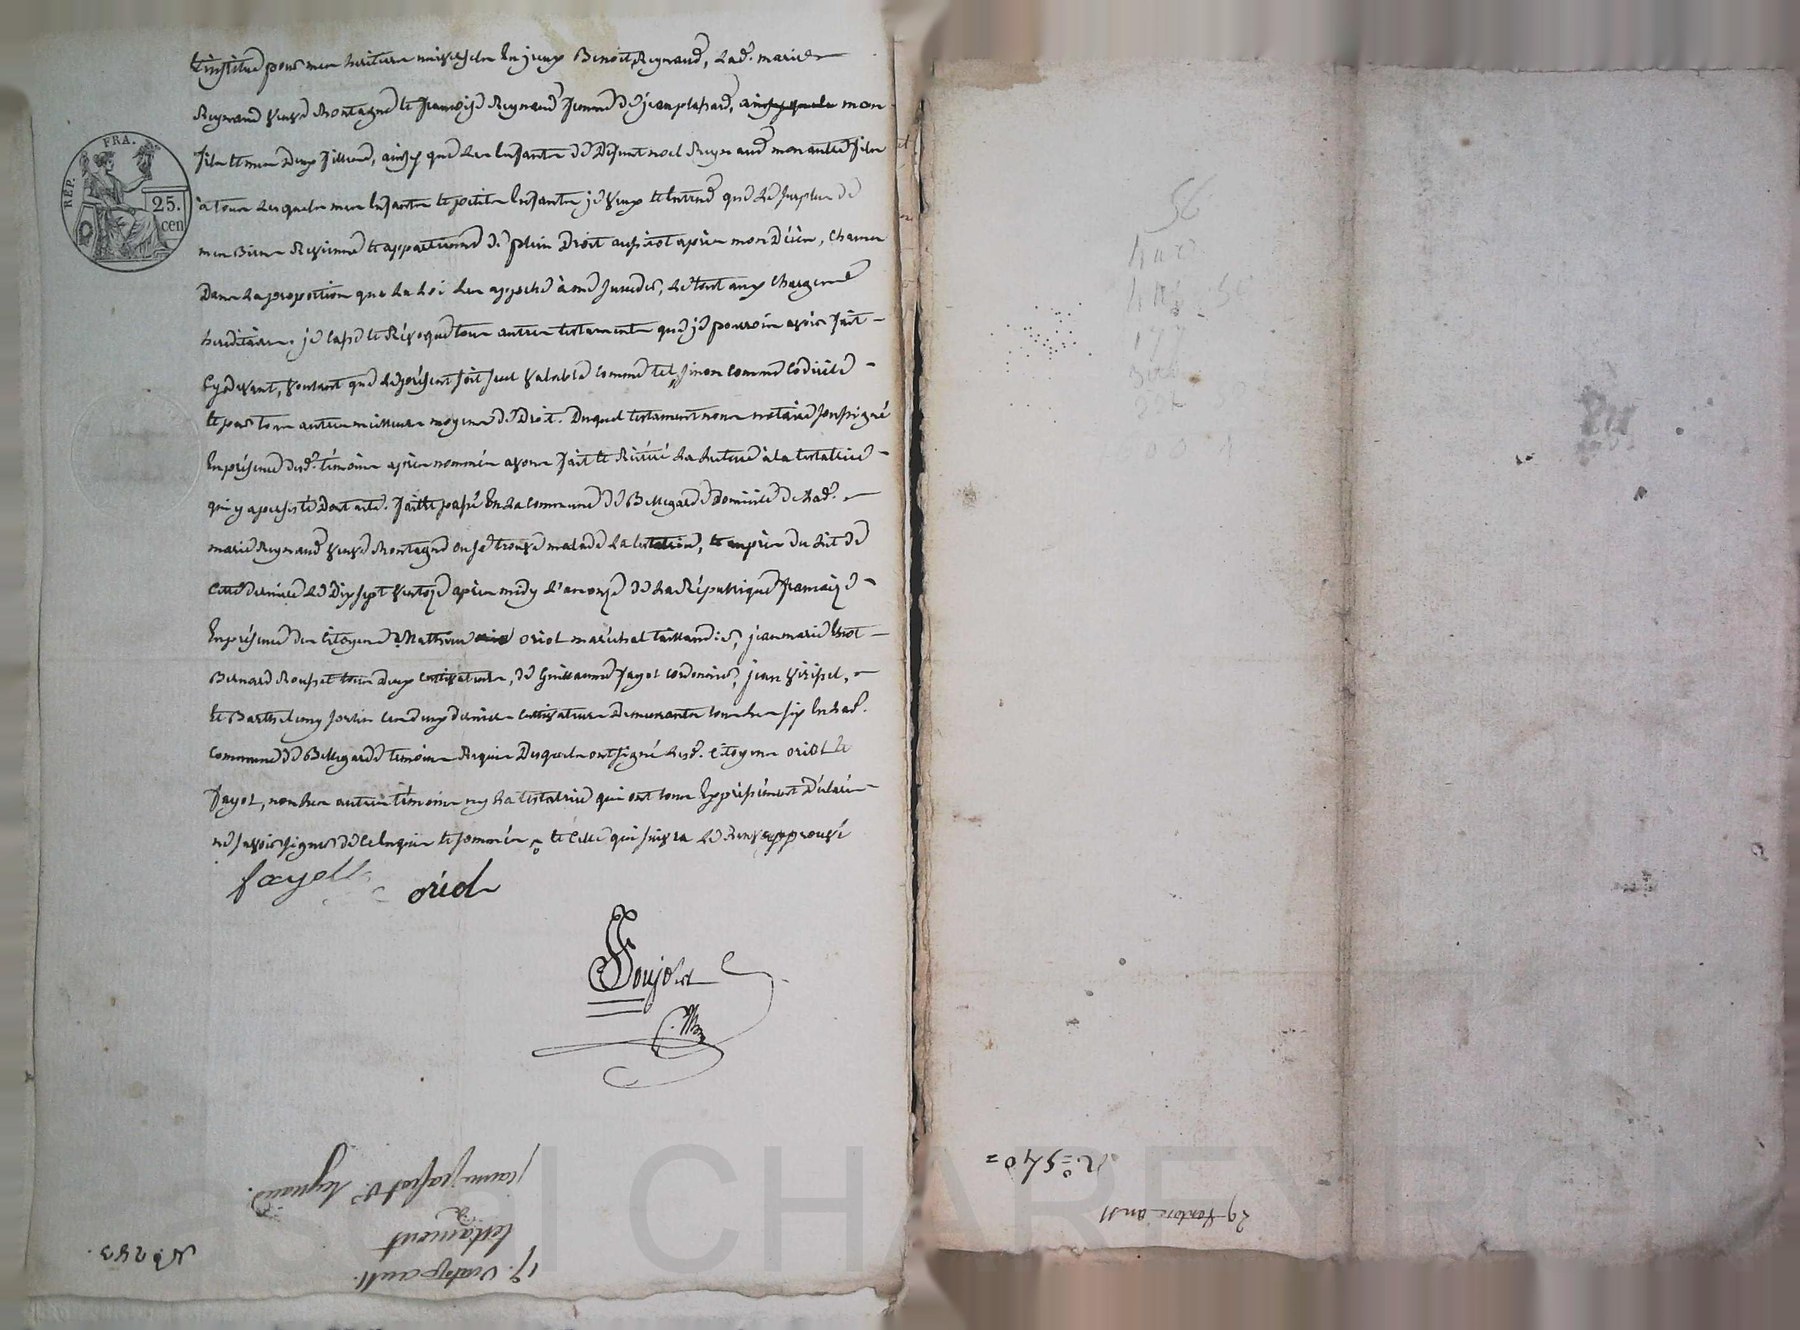 et institue pour mes héritiers universels Enjeux Benoit Reynaud, lad.e marie
Reynaud veuve Montagne et françoise Reynaud femme de jean plasard, mon
fils et mes deux filles, ainsy que les Enfants de Défunt noel Reynaud mon autre fils
à tous lesquels mes Enfants et petits Enfants je veux et Entend que le surplus de
mes Biens Revienne et appartienne de plein Droit aussitot après mon Décès, chacun
Dans la proportion que la Loi les appelle à me succeder, le tout aux charges
hereditaires. je casse et Révoque tous autres testaments que je pourrois avoir fait
Cy devant, voulant que le présent soit seul valable comme tel, sinon comme Codicile
et par tous autres meilleurs moyens de Droit. Duquel testament nous notaire soussigné
En présence desd. témoins après nommés avons fait et Réitéré la lecture à la testatrice
qui y a persisté Dont acte. fait et passé En la commune de Bellegarde Domicile de lad.e
marie Reynaud veuve Montagne ou se trouve malade la testatrice, et auprès du Lit de
cette derniere le Dix sept ventose après midy L'an onze de la République française
En présence des Citoyens Mathieu oriol maréchal taillandier, jean marie
Bernard Rousset tous deux cultivateurs, de Guillaume fayol cordonnier, jean
et Barthelemy ces deux derniers cultivateurs Demeurants tous les six En lad.
commune de Bellegarde témoins Requis Desquels ont signé lesd. Citoyens oriol et
fayol, non les autres témoins ny la testatrice qui ont tous Expressément déclaré
ne savoir signer de ce Enquis et sommés et celle qui suivra le Renv approuvé
fayolle oriol
Poujolat
N.° 540
29 Ventose an 11
jeanne v.e Reynaud.
testament
17. Ventose an 11.
N.° 293.
FRA.
RÉP.
25.
cen
56
Pascal CHAREYRON